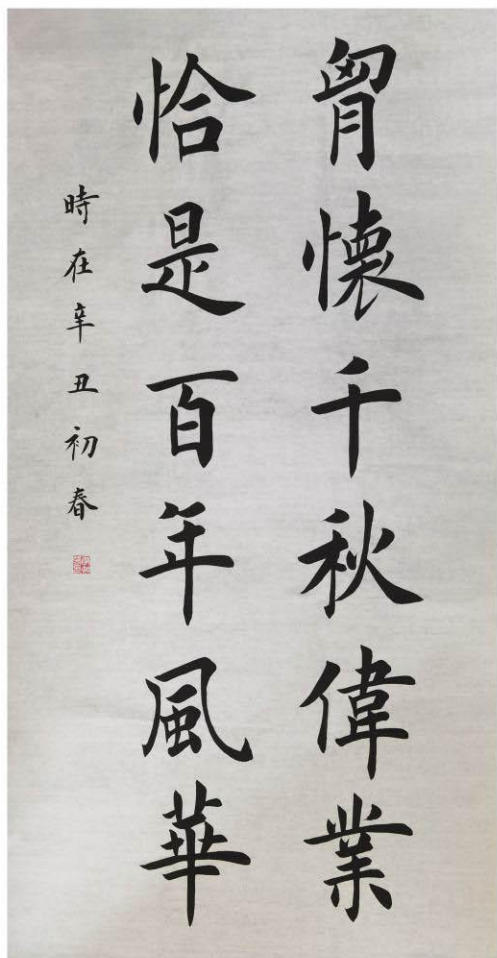 胷懷千秋偉業
恰是百年風華
時在辛丑初春